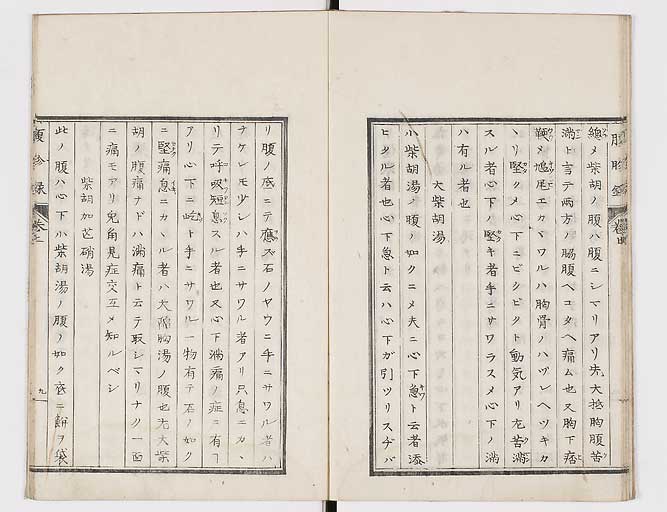 總メ柴胡ノ腹ハ腹ニシマリアリ先大抵胸腹苦
満ト言テ両方ノ脇腹ヘコタヘ痛ム也又胸下痞
鞕メ鳩尾エカヽワルハ胸骨ノハヅレヘツキカ
ヽリ堅クメ心下ニビクビクト動気アリ尤苦満
スル者心下ノ堅キ者手ニサワラスメ心下ノ満
ハ有ル者也
大柴胡湯
小柴胡湯ノ腹ノ如クニメ夫ニ心下急ト云者添
ヒタル者也心下急ト云ハ心下ガ引ツリスヂバ
リ腹ノ底ニテ應ズ石ノヤウニ手ニサワル者ハ
ナケレモ少レハ手ニサワル者アリ只息ニカヽ
リテ呼吸短息スル者也又心下満痛ノ症ニ有ヿ
アリ心下ニ屹ト手ニサワル一物有テ石ノ如ク
ニ堅痛息ニカヽル者ハ大陥胸湯ノ腹也尤大柴
胡ノ腹痛ナドハ満痛ト云テ取シマリナク一面
ニ痛モアリ兎角見症交互メ知ルベシ
柴胡加芒硝湯
此ノ腹ハ心下小柴胡湯ノ腹ノ如ク底ニ餅ヲ袋
腹診録
巻之
九